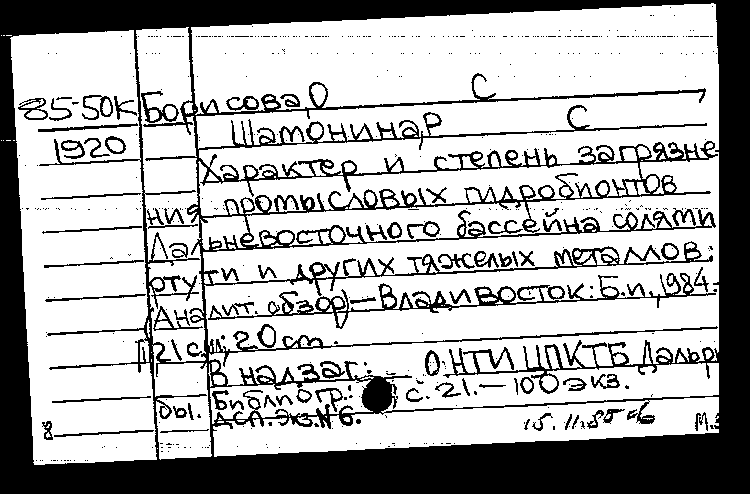 85-50К Борисова,О С
1920 Шамонина,Р С
Характер и степень загрязне-
ния промысловых гидробионтов
Дальневосточного бассейна солями
ртути и других тяжелых металлов:
(Аналит. обзор).—Владивосток: Б.и., 1984.-
21с.; 20 cm.
В надзаг.: ОНТИ ЦПКТБ Дальры
бы. Библиогр.: с. 21.— 100 экз.
ДСП. Экз.№6.
15.11.85